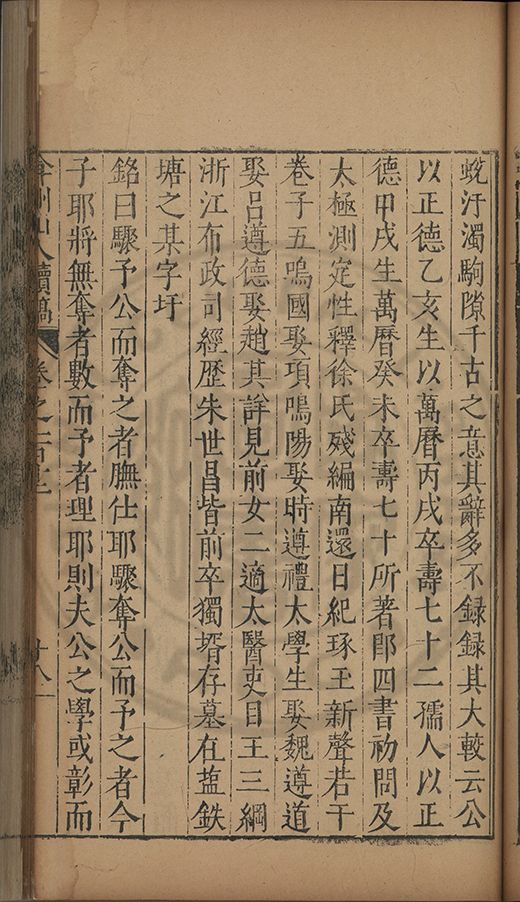 蛻汙濁駒隙千古之意其辭多不録録其大較云公
以正德乙亥生以萬曆丙戌卒壽七十二孺人以正
德甲戌生萬曆癸未卒壽七十所著郎四書初問及
太極測定性釋徐氏殘編南還日紀琢玉新聲若干
卷子五鳴國娶項鳴陽娶時遵禮太學生娶魏遵道
娶呂遵德娶趙其詳見前女二適太醫吏目王三綱
浙江布政司經歷朱世昌皆前卒獨壻存墓在盐鉄
塘之某字圩
銘曰驟予公而奪之者膴仕耶驟奪公而予之者今
子耶將無奪者數而予者理耶則夫公之學或彰而
山人續稿 卷之一百 廿八